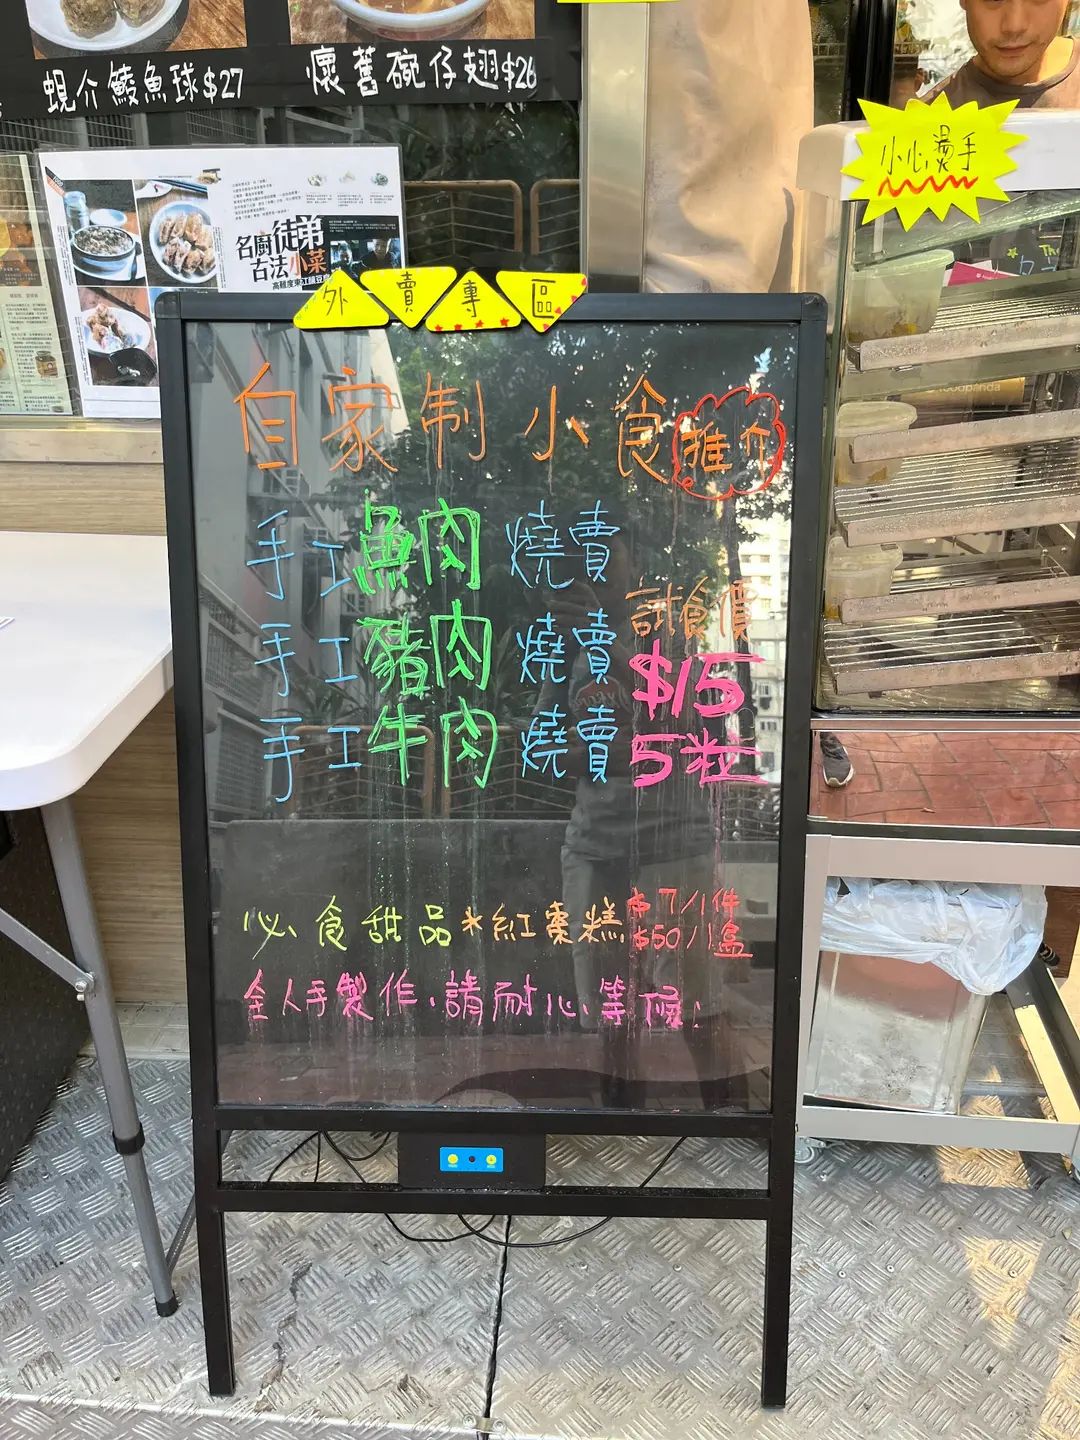 蜆介鯪魚球$27
懷舊碗仔翅$26
小心燙手
名廚徒弟
古法小菜
外賣專區
自家制小食推介
手工魚肉燒賣
手工豬肉燒賣
手工牛肉燒賣
試食價
$15
5粒
必食甜品*紅棗糕
$7/1件
$50/1盒
全人手製作，請耐心等候！